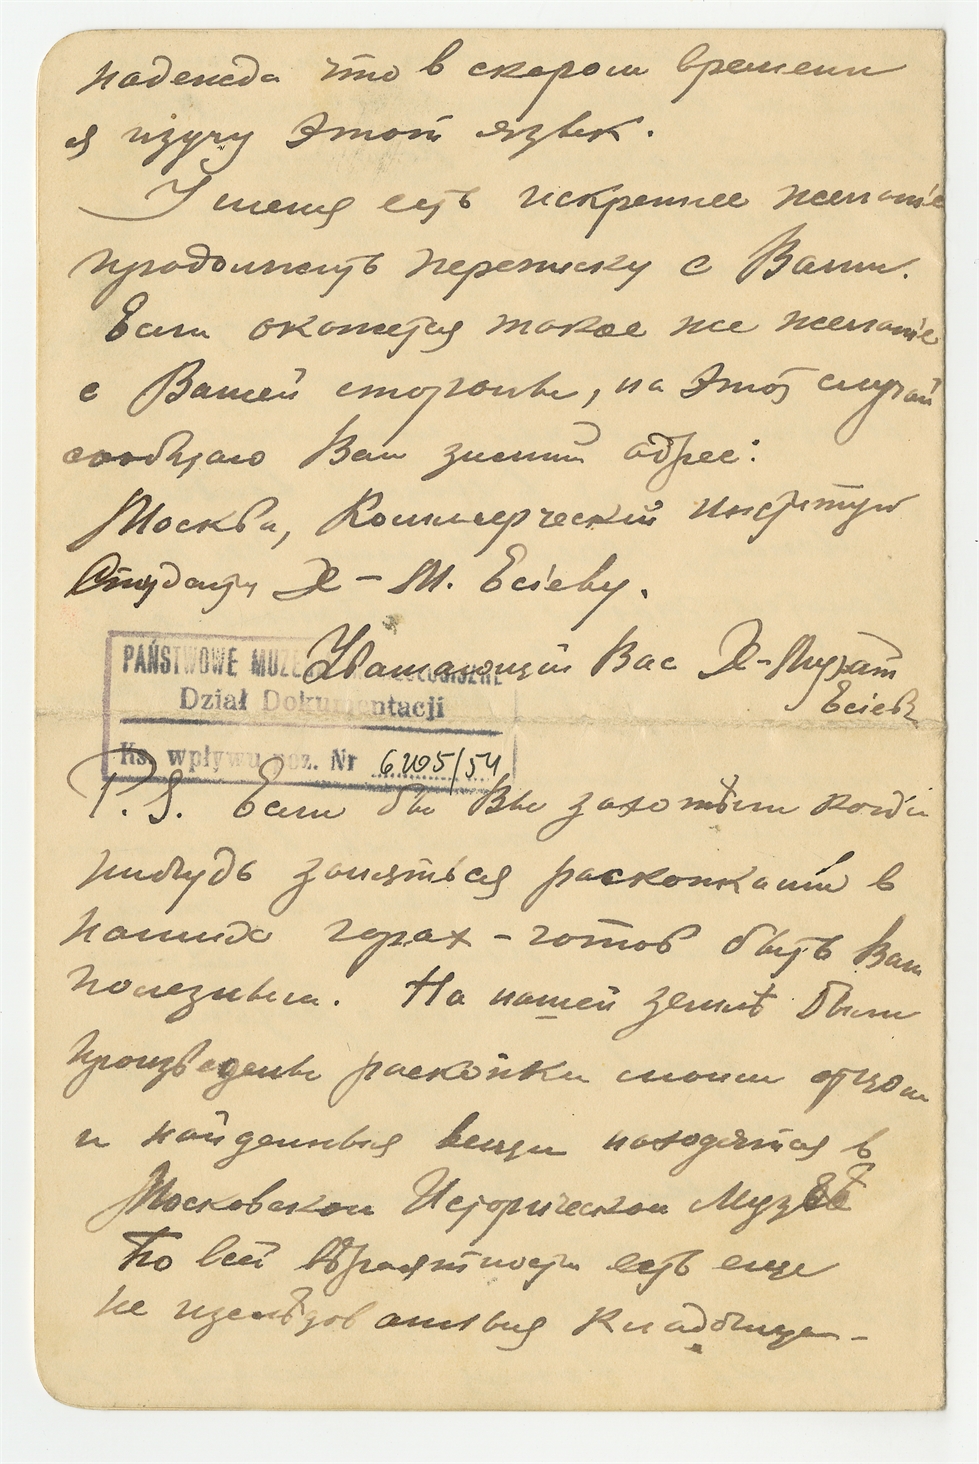 надежда что в скором времени
я изучу этот язык.
У меня есть искреннее желаніе
продолжить переписку с Вами.
Если окажется такое же желаніе
с Вашей стороны, на этот случай
сообщаю Вам зимний адрес:
Москва, Коммерческій Институт
Студенту Х-М. Есіеву.
Уважающій Вас Х-Мурат
Есіевъ
PAŃSTWOWE MUZEUM ARCHEOLOGICZNE
Dział Dokumentacji
Ks. wpływu poz. Nr 6205/54
P.S. Если бы Вы захотѣли когда
нибудь заняться раскопками в
наших горах - готов быть Вам
полезным. На нашей землѣ были
произведены раскопки моим отцом
и найденныя вещи находятся в
Московском Историческом Музеѣ
По всей вѣроятности есть еще
не изслѣдованныя кладбища -